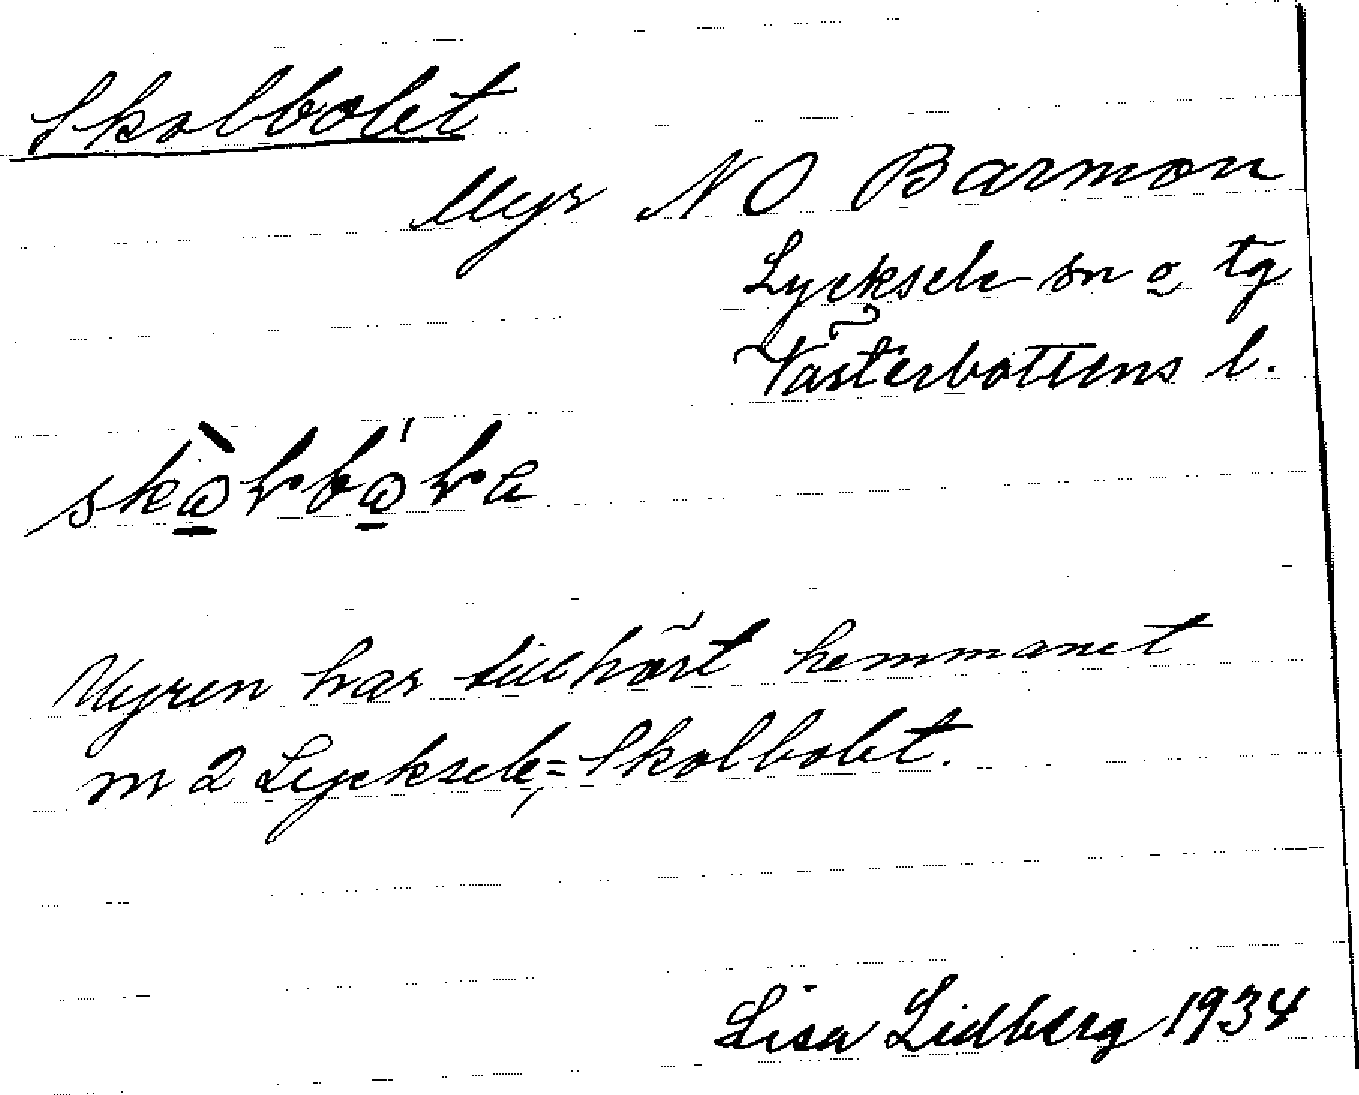 Skolbolet
Myr NO Barmon
Lycksele sn o tg
Västerbottens l.
Myren har tillhört hemmanet
m 2 Lycksele, = Skolbolet.
Lisa Lidberg 1934